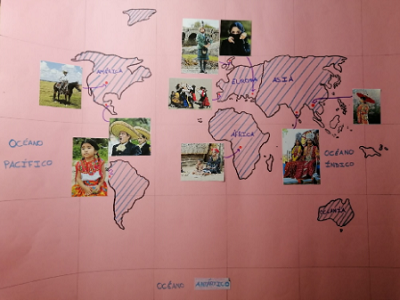 AMÉRICA
EUROPA
ASIA
ÁFRICA
OCÉANO
PACÍFICO
OCÉANO
ÍNDICO
OCEANÍA
OCÉANO